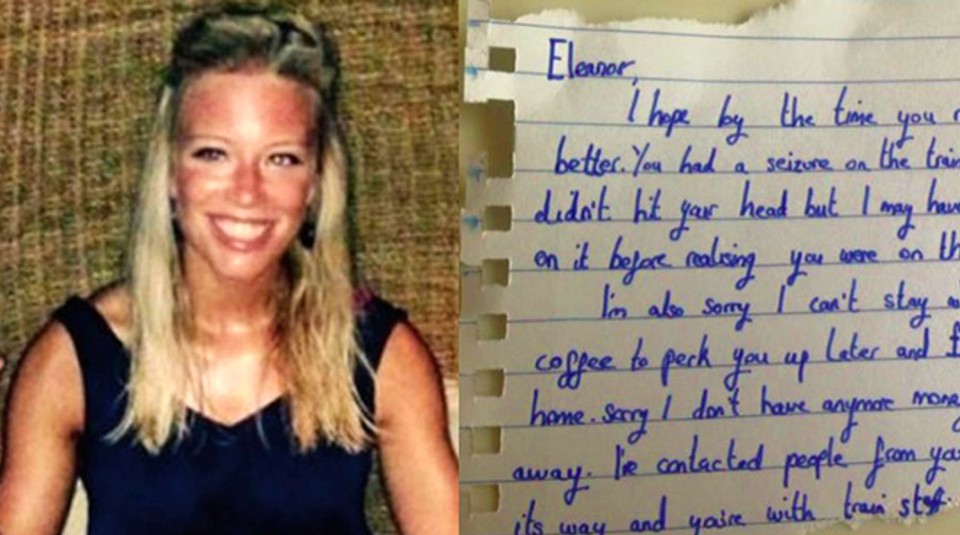 Eleanor,
I hope by the time you
better. You had a seizure on the train
didn't hit your head but I may have
on it before realising you were on th
I'm also sorry I can't stay
coffee to perk you up later and £
home. Sorry I don't have anymore mone
away. I've contacted people from yo
its way and you're with train staff.